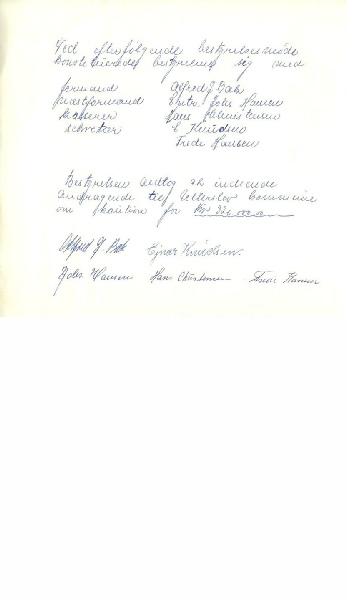 Ved efterfølgende bestyrelsesmøde
konstituerede bestyrelsen sig med
formand Alfred G Bak
næstformand Entr. Johs Hansen
kasserer Hans Christensen
sekretær E Knudsen
Frede Hansen
Bestyrelsen vedtog at indsende
andragende til Vetterslev Commune
om kaution for
Alfred G Bak Ejnar Knudsen.
Johs Hansen Hans Christensen Hansen